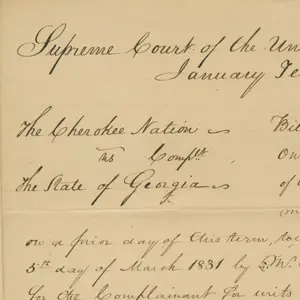 Supreme Court of the Un
January Te
The Cherokee Nation
Bil
vs Complt
On
The State of Georgia
of
on a prior day of this term, to
5th day of March 1831 by
for the Complainant for writs